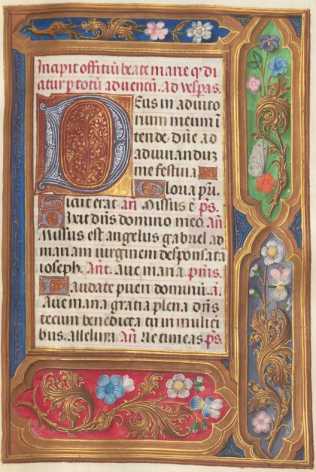 Incipit offitiũ beate marie q̃ di
catur p totũ aduentũ. ad vesp̃as.
Deus in adiuto
rium meum ĩ
tende. dñe ad
adiuuanduz
me festina.
Gloria pr̃i.
Sicut erat. añ. Missus ẽ. p̃s.
Dixit dñs domino meo. añ.
Missus est angelus gabriel ad
mariam uirginem desponsatã
ioseph. Añt. aue maria. p̃mis.
Laudate pueri dominũ. ã.
aue maria gratia plena dñs
tecum benedicta tu in mulieri
bus. alleluia. añ. Ne timeas. p̃s.